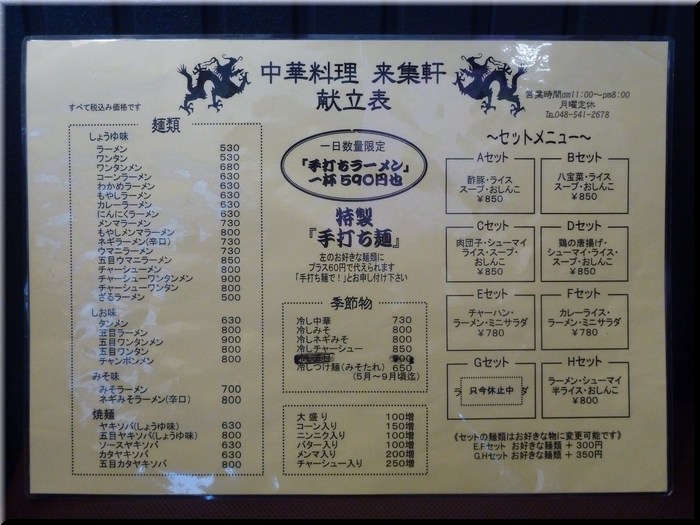 中華料理 来集軒
献立表
すべて税込み価格です
営業時間am11:00～pm8:00
月曜定休
℡048-541-2678
麺類
しょうゆ味
ラーメン 530
ワンタン 530
ワンタンメン 680
コーンラーメン 630
わかめラーメン 630
もやしラーメン 630
カレーラーメン 630
にんにくラーメン 630
メンマラーメン 730
もやしメンマラーメン 800
ネギラーメン(辛口) 730
ウマニラーメン 730
五目ウマニラーメン 850
チャーシューメン 800
チャーシューワンタンメン 900
チャーシューワンタン 800
ざるラーメン 500
しお味
タンメン 630
五目ラーメン 800
五目ワンタンメン 900
五目ワンタン 800
チャンポンメン 800
みそ味
みそラーメン 700
ネギみそラーメン(辛口) 800
焼麺
ヤキソバ(しょうゆ味) 630
五目ヤキソバ(しょうゆ味) 800
ソースヤキソバ 630
カタヤキソバ 630
五目カタヤキソバ 800
一日数量限定
「手打ちラーメン」
一杯590円也
特製
『手打ち麺』
左のお好きな麺類に
プラス60円で代えられます
「手打ち麺で！」とお申し付け下さい
季節物
冷し中華 730
冷しみそ 800
冷しネギみそ 800
冷しチャーシュー 850
冷しつけ麺(みそたれ) 650
(5月～9月頃迄)
大盛り 100増
コーン入り 150増
ニンニク入り 100増
バター入り 100増
メンマ入り 200増
チャーシュー入り 250増
～セットメニュー～
Aセット
酢豚・ライス
スープ・おしんこ
￥850
Bセット
八宝菜・ライス
スープ・おしんこ
￥850
Cセット
肉団子・シューマイ
ライス・スープ・
おしんこ
￥850
Dセット
鶏の唐揚げ・
シューマイ・ライス・
スープ・おしんこ
￥850
Eセット
チャーハン・
ラーメン・ミニサラダ
￥780
Fセット
カレーライス・
ラーメン・ミニサラダ
￥780
Gセット
只今休止中
Hセット
ラーメン・シューマイ
半ライス・おしんこ
￥800
《セットの麺類はお好きな物に変更可能です》
E.Fセット お好きな麺類 + 300円
G.Hセット お好きな麺類 + 350円